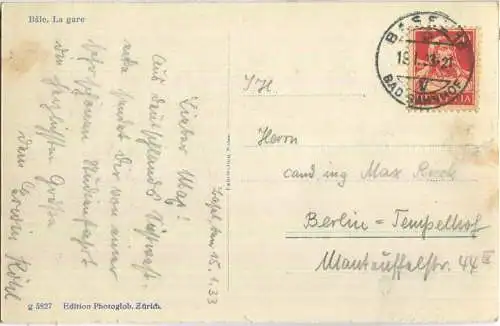 Bâle. La gare
Basel den 15.1.33
Lieber Max!
Aus Deutschlands Südwest-
ecke sendet Dir von einer
sehr schönen Studienfahrt
die herzlichsten Grüße
dein Erwin Röhl
g 5827 Edition Photoglob. Zürich.
BASEL
BAD. BAHNHOF
HELVETIA
I.H.
Herrn
cand ing Max Reck
Berlin - Tempelhof
Manteuffelstr. 44 III